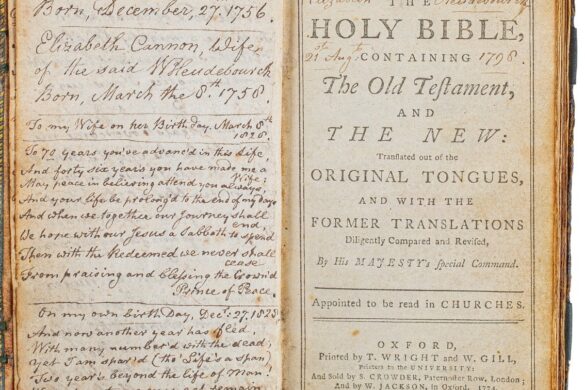 Born, December, 27. 1756.
Elizabeth Cannon, Wife,
of the said W Heudebourck
Born, March the 8th. 1758.
To my Wife on her Birthday. March 8th
1828.
To 70 years you've advanc'd in this Life,
And forty six years you have made me a
Wife;
May peace in believing attend you always,
And your life be prolong'd to the end of my days
And when we together our Journey shall
end,
We hope with our Jesus a Sabbath to spend
Then with the Redeemed we never shall
cease
From praising and blessing the Crown'd
Prince of Peace.
On my own birth Day, Decr. 27. 1828
And now another year has fled,
With many number'd with the dead;
Yet I am spar'd (tho' Life's a span)
Two years beyond the life of Man.
THE
Elizabeth Heudebourck
HOLY BIBLE,
CONTAINING
21st Augt. 1798.
The Old Testament,
AND
THE NEW:
Translated out of the
ORIGINAL TONGUES,
AND WITH THE
FORMER TRANSLATIONS
Diligently Compared and Revised,
By His MAJESTY's special Command.
Appointed to be read in CHURCHES.
OXFORD,
Printed by T. WRIGHT and W. GILL,
Printers to the UNIVERSITY:
And Sold by S. CROWDER, Paternoster Row, London;
And by W. JACKSON, in Oxford.